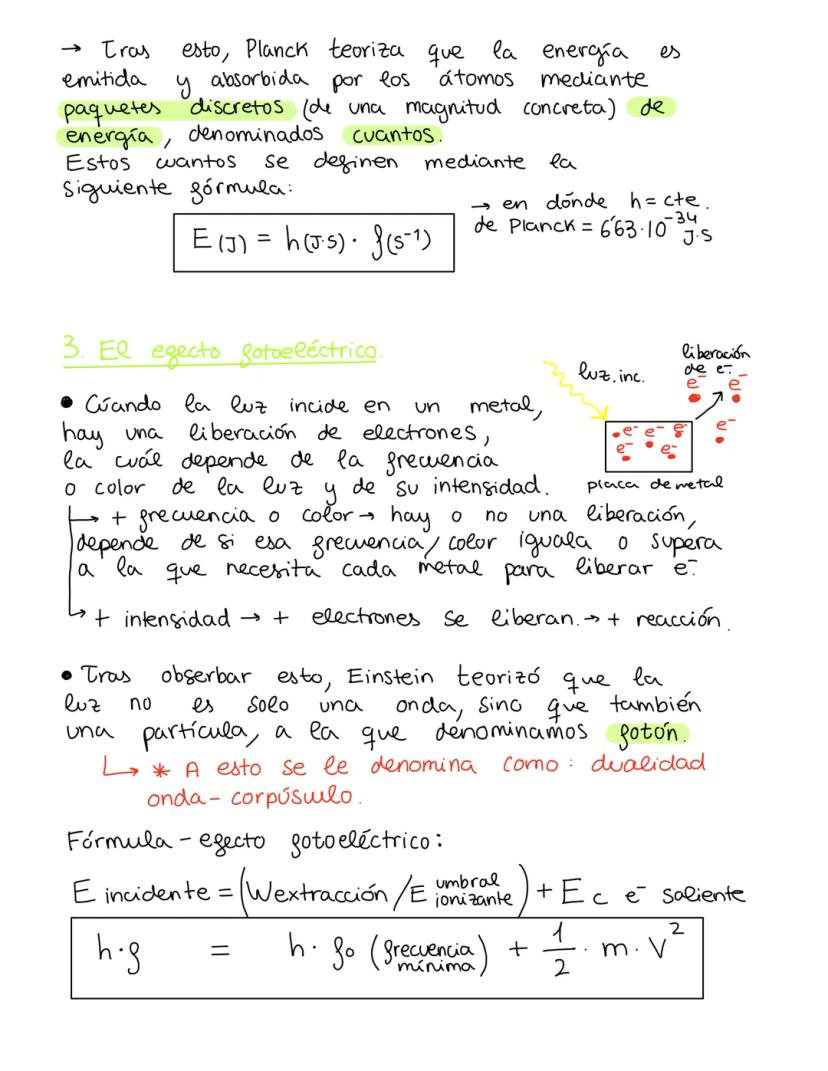 → Tras esto, Planck teoriza que la energía es
emitida y absorbida por los átomos mediante
paquetes discretos (de una magnitud concreta) de
energía, denominados cuantos.
Estos cuantos se definen mediante la
siguiente fórmula:
→ en dónde h = cte.
de Planck = 6'63·10^-34 J·s
E (J) = h (J·s) · f (s^-1)
3. El efecto fotoeléctrico.
luz. inc.
liberación
de e⁻.
e⁻ e⁻
e⁻
e⁻ e⁻ e⁻
e⁻ e⁻
placa de metal
• Cúando la luz incide en un metal,
hay una liberación de electrones,
la cuál depende de la frecuencia
o color de la luz y de su intensidad.
↳ + frecuencia o color → hay o no una liberación,
depende de si esa frecuencia/color iguala o supera
a la que necesita cada metal para liberar e⁻.
↳ + intensidad → + electrones se liberan. → + reacción.
• Tras obserbar esto, Einstein teorizó que la
luz no es solo una onda, sino que también
una partícula, a la que denominamos fotón.
↳ * A esto se le denomina como: dualidad
onda - corpúsculo.
Fórmula - efecto fotoeléctrico:
E incidente = (Wextracción / E umbral ionizante) + E c e⁻ saliente
h·f = h·f₀ (frecuencia mínima) + 1/2 · m · v²